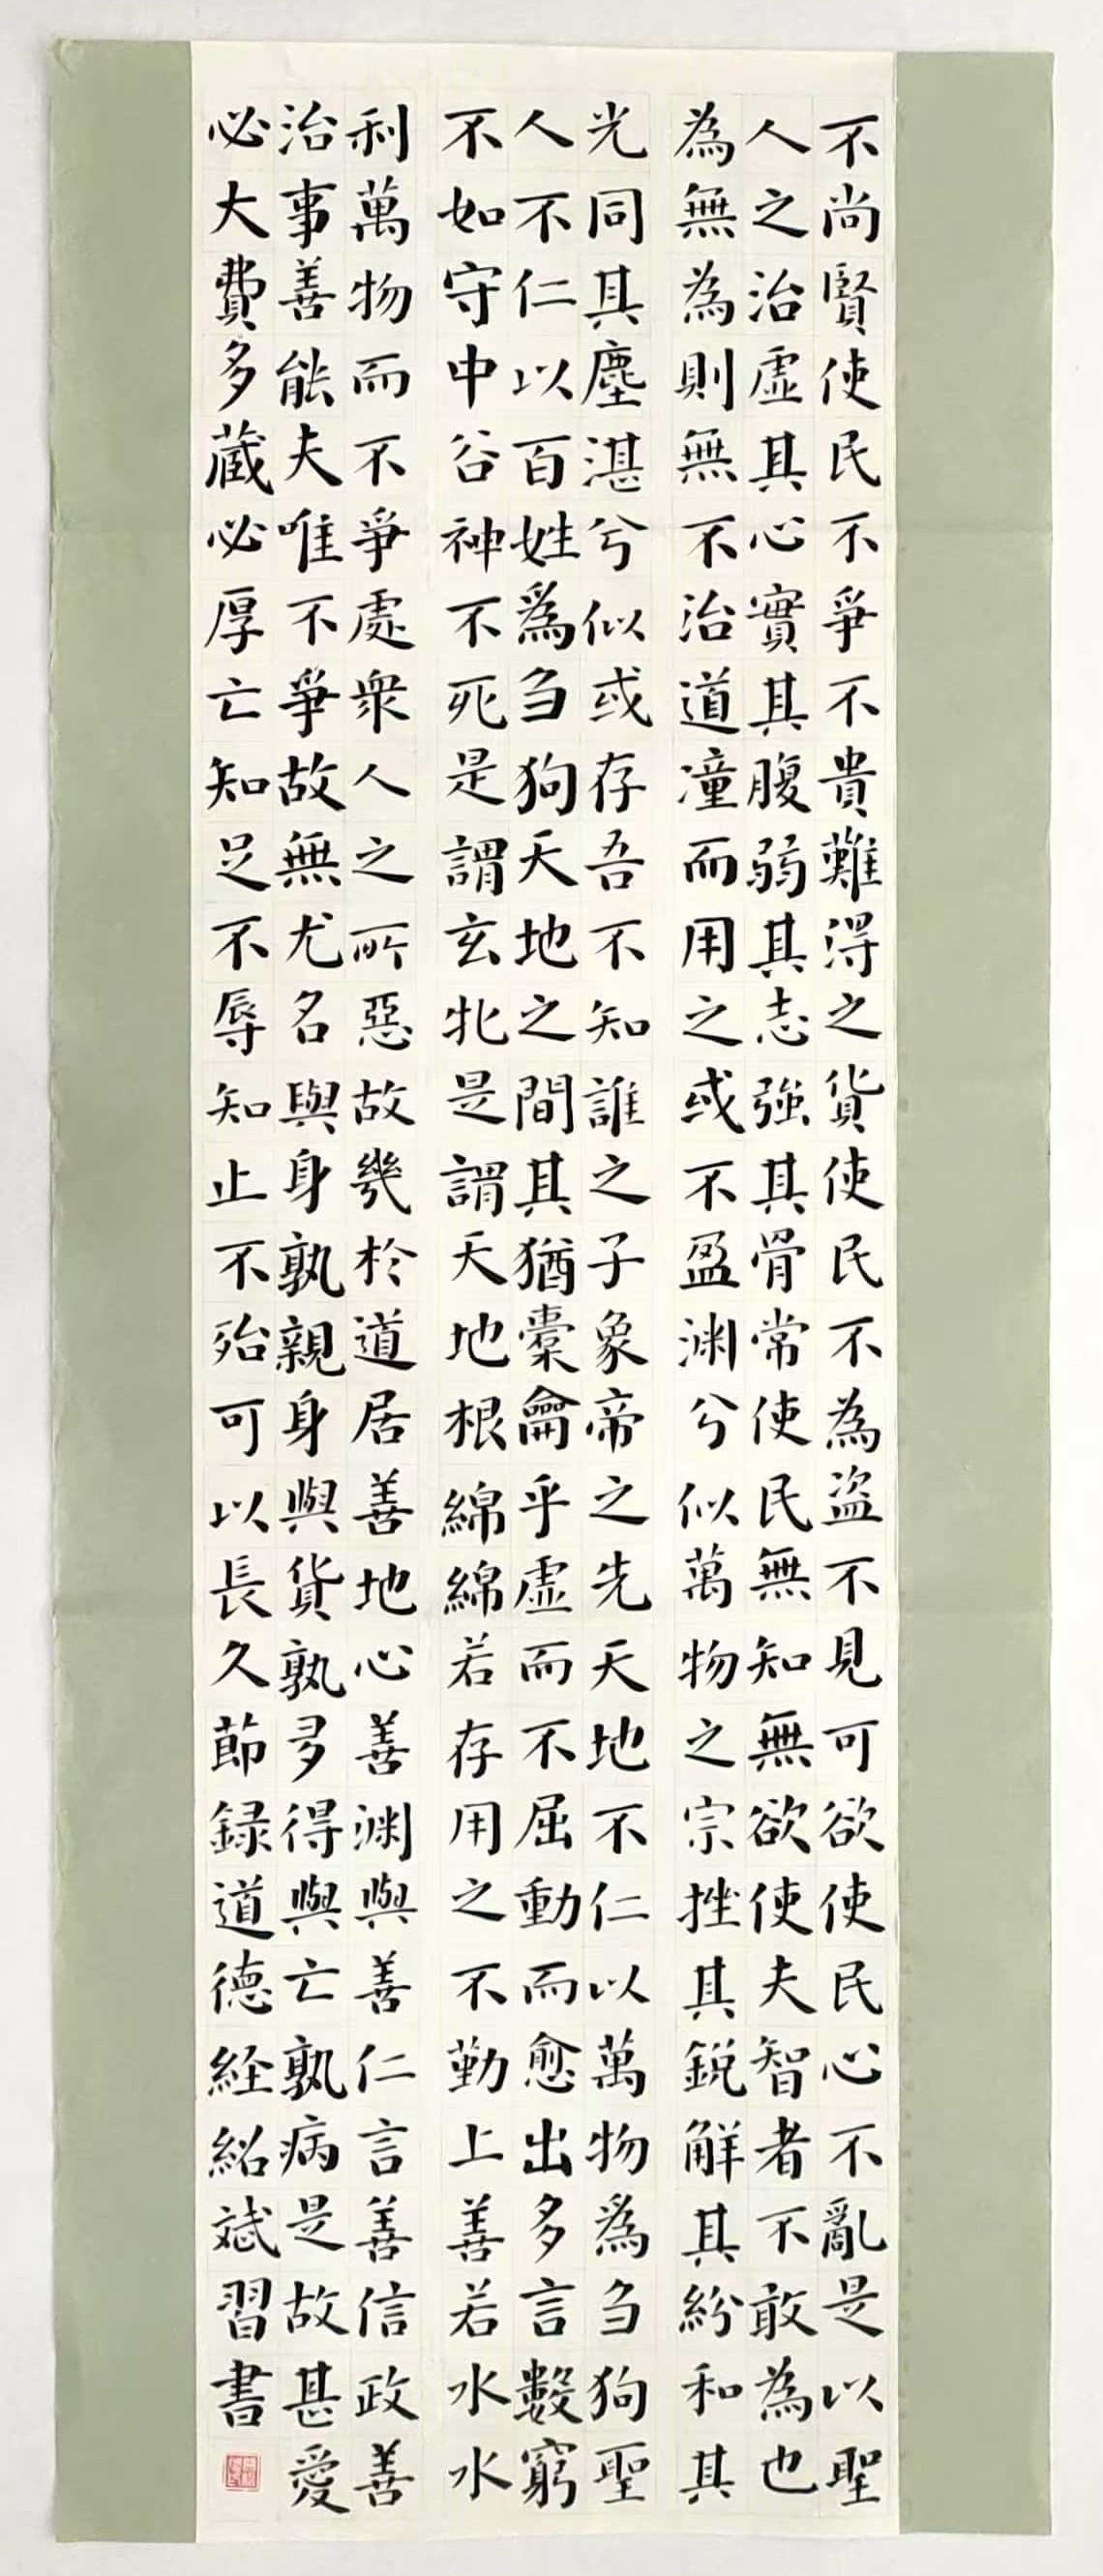 不尚賢使民不爭不貴難得之貨使民不為盜不見可欲使民心不亂是以聖
人之治虛其心實其腹弱其志強其骨常使民無知無欲使夫智者不敢為也
為無為則無不治道潼而用之或不盈渊兮似萬物之宗挫其銳解其紛和其
光同其塵湛兮似或存吾不知誰之子象帝之先天地不仁以萬物爲刍狗聖
人不仁以百姓爲刍狗天地之間其猶橐龠乎虛而不屈動而愈出多言數窮
不如守中谷神不死是謂玄牝是謂天地根綿綿若存用之不勤上善若水水
利萬物而不爭處衆人之所惡故幾於道居善地心善渊與善仁言善信政善
治事善能夫唯不爭故無尤名與身孰親身與貨孰多得與亡孰病是故甚愛
必大費多藏必厚亡知足不辱知止不殆可以長久節録道德経紹斌習書